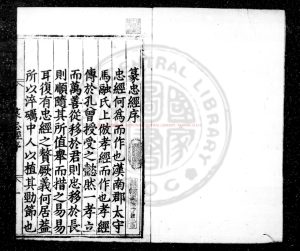 纂忠經序
忠經何為而作也漢南郡太守
馬融氏上倣孝經而作也孝經
傳於孔曾授受之懿然一孝立
而萬善從移於君則忠移於長
則順隨其所值舉而措之易易
耳復有忠經之贅厥義何居蓋
所以淬礪中人以植其勁節也